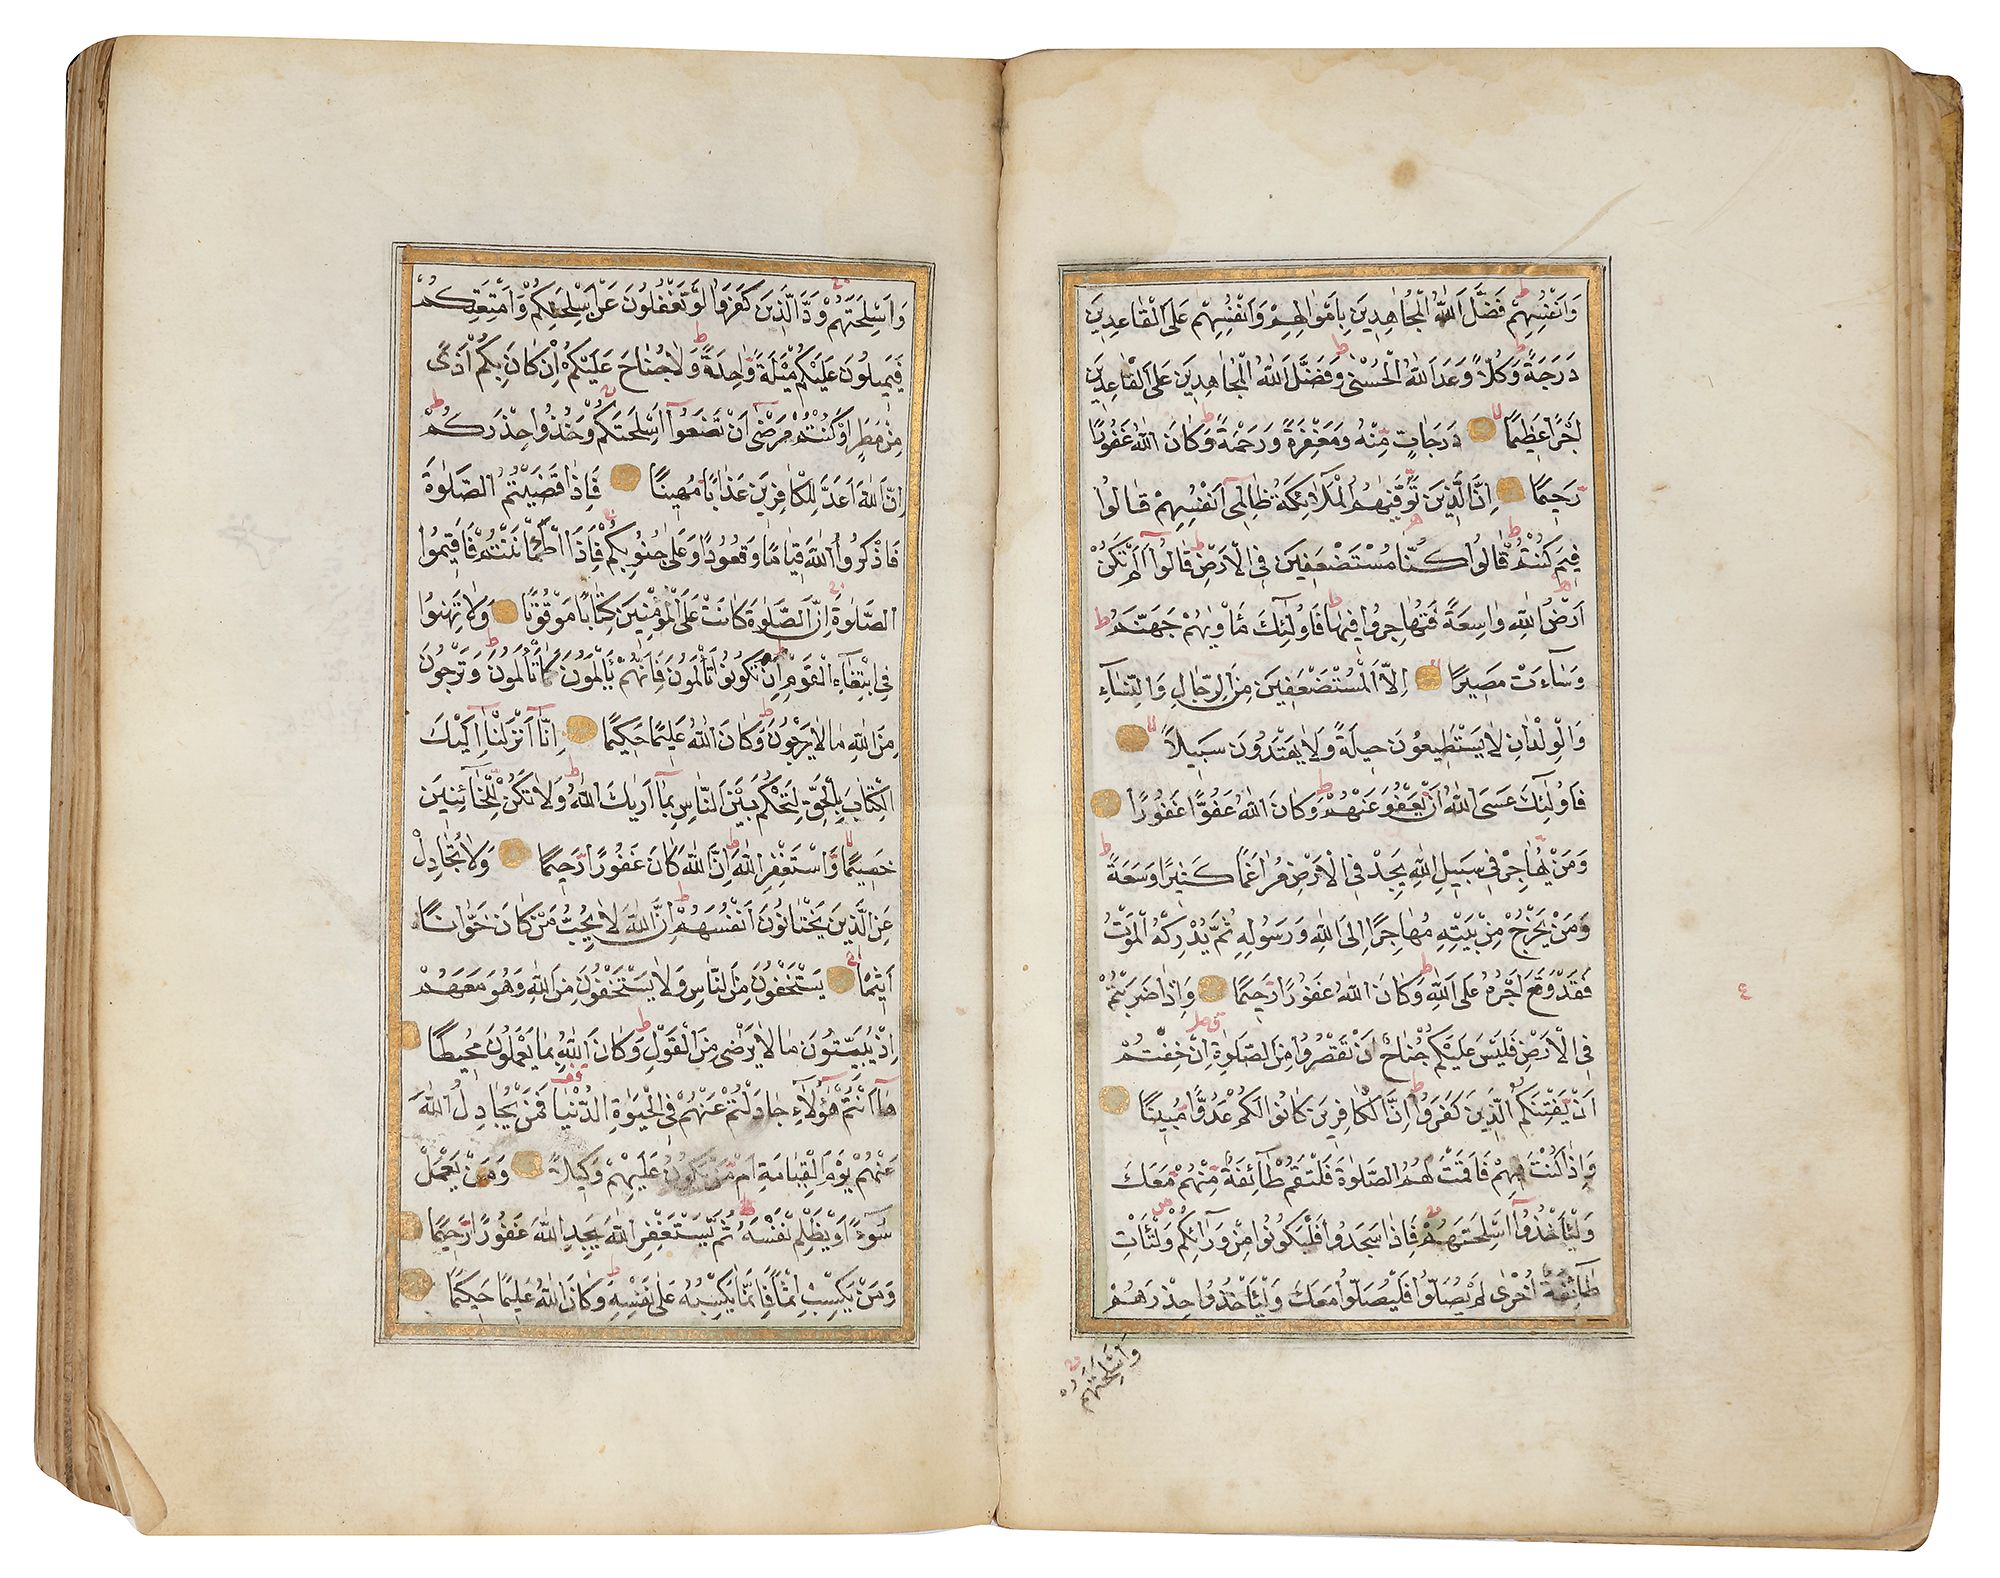 وَاَنْفُسِهِمْ فَضَّلَ اللهُ الْمُجَاهِدِينَ بِاَمْوَالِهِمْ وَاَنْفُسِهِمْ عَلَى الْقَاعِدِينَ
دَرَجَةً وَكُلًّا وَعَدَ اللهُ الْحُسْنٰى وَفَضَّلَ اللهُ الْمُجَاهِدِينَ عَلَى الْقَاعِدِينَ
اَجْرًا عَظِيمًا دَرَجَاتٍ مِنْهُ وَمَغْفِرَةً وَرَحْمَةً وَكَانَ اللهُ غَفُورًا
رَحِيمًا اِنَّ الَّذِينَ تَوَفّٰيهُمُ الْمَلٰٓئِكَةُ ظَالِمِٓى اَنْفُسِهِمْ قَالُوا
فِيمَ كُنْتُمْ قَالُوا كُنَّا مُسْتَضْعَفِينَ فِى الْاَرْضِ قَالُٓوا اَلَمْ تَكُنْ
اَرْضُ اللهِ وَاسِعَةً فَتُهَاجِرُوا فِيهَا فَاُولٰٓئِكَ مَاْوٰيهُمْ جَهَنَّمُ
وَسَٓاءَتْ مَصِيرًا اِلَّا الْمُسْتَضْعَفِينَ مِنَ الرِّجَالِ وَالنِّسَٓاءِ
وَالْوِلْدَانِ لَا يَسْتَطِيعُونَ حِيلَةً وَلَا يَهْتَدُونَ سَبِيلًا
فَاُولٰٓئِكَ عَسَى اللهُ اَنْ يَعْفُوَ عَنْهُمْ وَكَانَ اللهُ عَفُوًّا غَفُورًا
وَمَنْ يُهَاجِرْ فِى سَبِيلِ اللهِ يَجِدْ فِى الْاَرْضِ مُرَاغَمًا كَثِيرًا وَسَعَةً
وَمَنْ يَخْرُجْ مِنْ بَيْتِهِ مُهَاجِرًا اِلَى اللهِ وَرَسُولِهِ ثُمَّ يُدْرِكْهُ الْمَوْتُ
فَقَدْ وَقَعَ اَجْرُهُ عَلَى اللهِ وَكَانَ اللهُ غَفُورًا رَحِيمًا وَاِذَا ضَرَبْتُمْ
فِى الْاَرْضِ فَلَيْسَ عَلَيْكُمْ جُنَاحٌ اَنْ تَقْصُرُوا مِنَ الصَّلٰوةِ اِنْ خِفْتُمْ
اَنْ يَفْتِنَكُمُ الَّذِينَ كَفَرُوا اِنَّ الْكَافِرِينَ كَانُوا لَكُمْ عَدُوًّا مُبِينًا
وَاِذَا كُنْتَ فِيهِمْ فَاَقَمْتَ لَهُمُ الصَّلٰوةَ فَلْتَقُمْ طَٓائِفَةٌ مِنْهُمْ مَعَكَ
وَلْيَاْخُذُٓوا اَسْلِحَتَهُمْ فَاِذَا سَجَدُوا فَلْيَكُونُوا مِنْ وَرَٓائِكُمْ وَلْتَاْتِ
طَٓائِفَةٌ اُخْرٰى لَمْ يُصَلُّوا فَلْيُصَلُّوا مَعَكَ وَلْيَاْخُذُوا حِذْرَهُمْ
وَاَسْلِحَتَهُمْ
٤
وَاَسْلِحَتَهُمْ وَدَّ الَّذِينَ كَفَرُوا لَوْ تَغْفُلُونَ عَنْ اَسْلِحَتِكُمْ وَاَمْتِعَتِكُمْ
فَيَمِيلُونَ عَلَيْكُمْ مَيْلَةً وَاحِدَةً وَلَا جُنَاحَ عَلَيْكُمْ اِنْ كَانَ بِكُمْ اَذًى
مِنْ مَطَرٍ اَوْ كُنْتُمْ مَرْضٰٓى اَنْ تَضَعُٓوا اَسْلِحَتَكُمْ وَخُذُوا حِذْرَكُمْ
اِنَّ اللهَ اَعَدَّ لِلْكَافِرِينَ عَذَابًا مُهِينًا فَاِذَا قَضَيْتُمُ الصَّلٰوةَ
فَاذْكُرُوا اللهَ قِيَامًا وَقُعُودًا وَعَلٰى جُنُوبِكُمْ فَاِذَا اطْمَاْنَنْتُمْ فَاَقِيمُوا
الصَّلٰوةَ اِنَّ الصَّلٰوةَ كَانَتْ عَلَى الْمُؤْمِنِينَ كِتَابًا مَوْقُوتًا وَلَا تَهِنُوا
فِى ابْتِغَٓاءِ الْقَوْمِ اِنْ تَكُونُوا تَاْلَمُونَ فَاِنَّهُمْ يَاْلَمُونَ كَمَا تَاْلَمُونَ وَتَرْجُونَ
مِنَ اللهِ مَا لَا يَرْجُونَ وَكَانَ اللهُ عَلِيمًا حَكِيمًا اِنَّٓا اَنْزَلْنَٓا اِلَيْكَ
الْكِتَابَ بِالْحَقِّ لِتَحْكُمَ بَيْنَ النَّاسِ بِمَٓا اَرٰيكَ اللهُ وَلَا تَكُنْ لِلْخَٓائِنِينَ
خَصِيمًا وَاسْتَغْفِرِ اللهَ اِنَّ اللهَ كَانَ غَفُورًا رَحِيمًا وَلَا تُجَادِلْ
عَنِ الَّذِينَ يَخْتَانُونَ اَنْفُسَهُمْ اِنَّ اللهَ لَا يُحِبُّ مَنْ كَانَ خَوَّانًا
اَثِيمًا يَسْتَخْفُونَ مِنَ النَّاسِ وَلَا يَسْتَخْفُونَ مِنَ اللهِ وَهُوَ مَعَهُمْ
اِذْ يُبَيِّتُونَ مَا لَا يَرْضٰى مِنَ الْقَوْلِ وَكَانَ اللهُ بِمَا يَعْمَلُونَ مُحِيطًا
هَٓا اَنْتُمْ هٰٓؤُلَٓاءِ جَادَلْتُمْ عَنْهُمْ فِى الْحَيٰوةِ الدُّنْيَا فَمَنْ يُجَادِلُ اللهَ
عَنْهُمْ يَوْمَ الْقِيَامَةِ اَمْ مَنْ يَكُونُ عَلَيْهِمْ وَكِيلًا وَمَنْ يَعْمَلْ
سُٓوءًا اَوْ يَظْلِمْ نَفْسَهُ ثُمَّ يَسْتَغْفِرِ اللهَ يَجِدِ اللهَ غَفُورًا رَحِيمًا
وَمَنْ يَكْسِبْ اِثْمًا فَاِنَّمَا يَكْسِبُهُ عَلٰى نَفْسِهِ وَكَانَ اللهُ عَلِيمًا حَكِيمًا